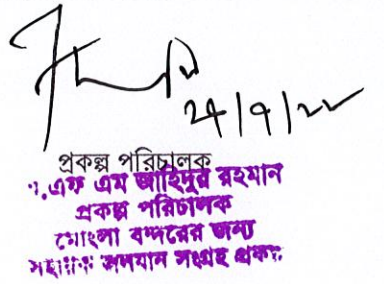 ২৭/৭/২২
প্রকল্প পরিচালক
এ.এফ এম জাহিদুর রহমান
প্রকল্প পরিচালক
মোংলা বন্দরের জন্য
সহায়ক জলযান সংগ্রহ প্রকল্প